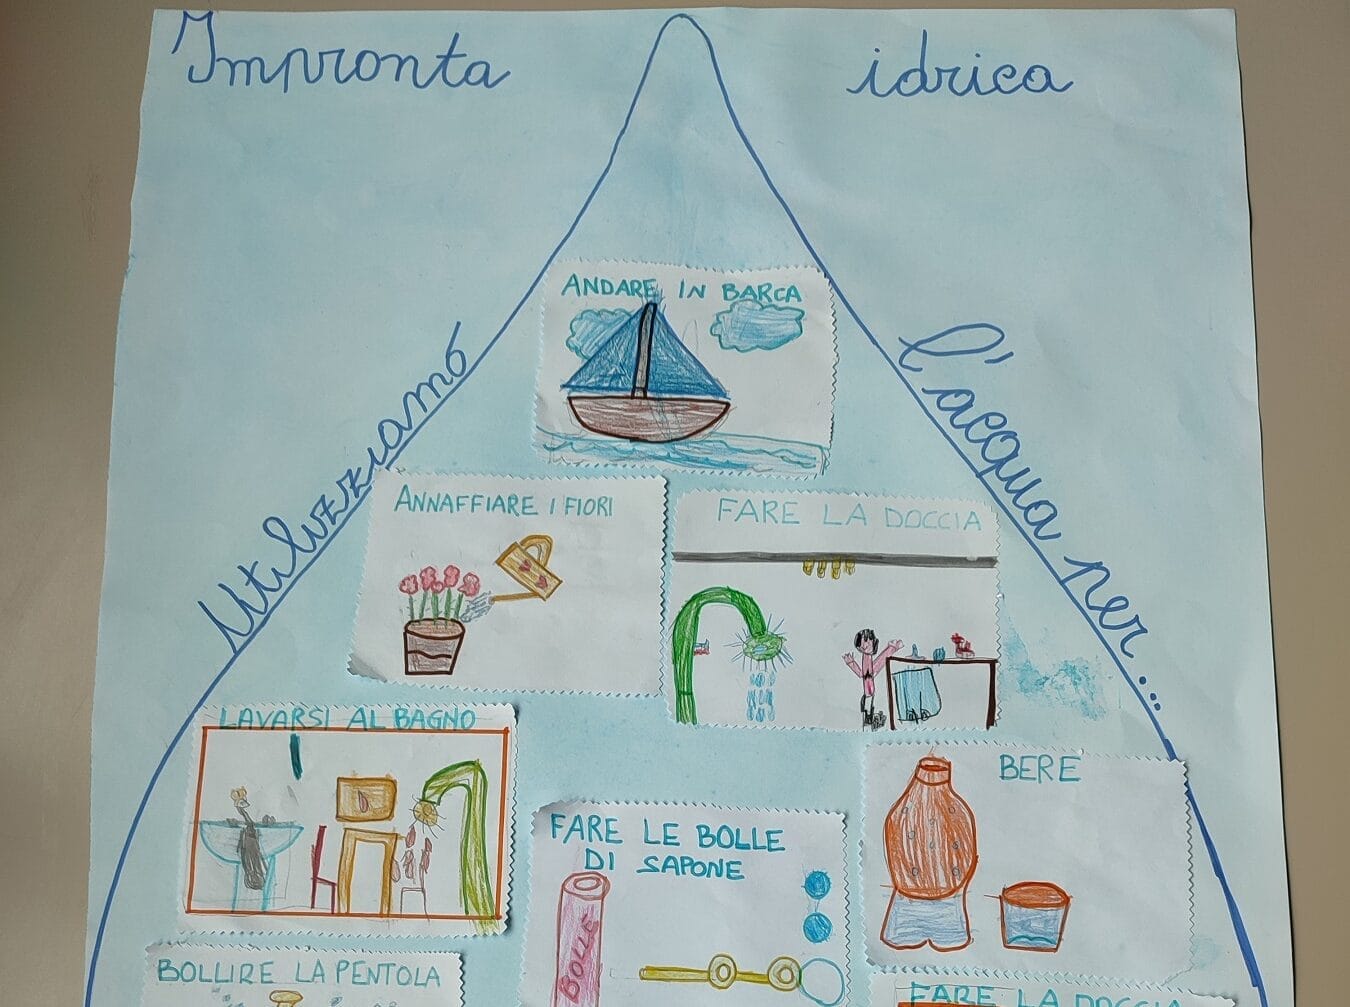 Impronta idrica
Utiluzziamo l'acqua per...
ANDARE IN BARCA
ANNAFFIARE I FIORI
FARE LA DOCCIA
LAVARSI AL BAGNO
FARE LE BOLLE
DI SAPONE
BOLLE
BERE
BOLLIRE LA PENTOLA
FARE LA DOCCIA